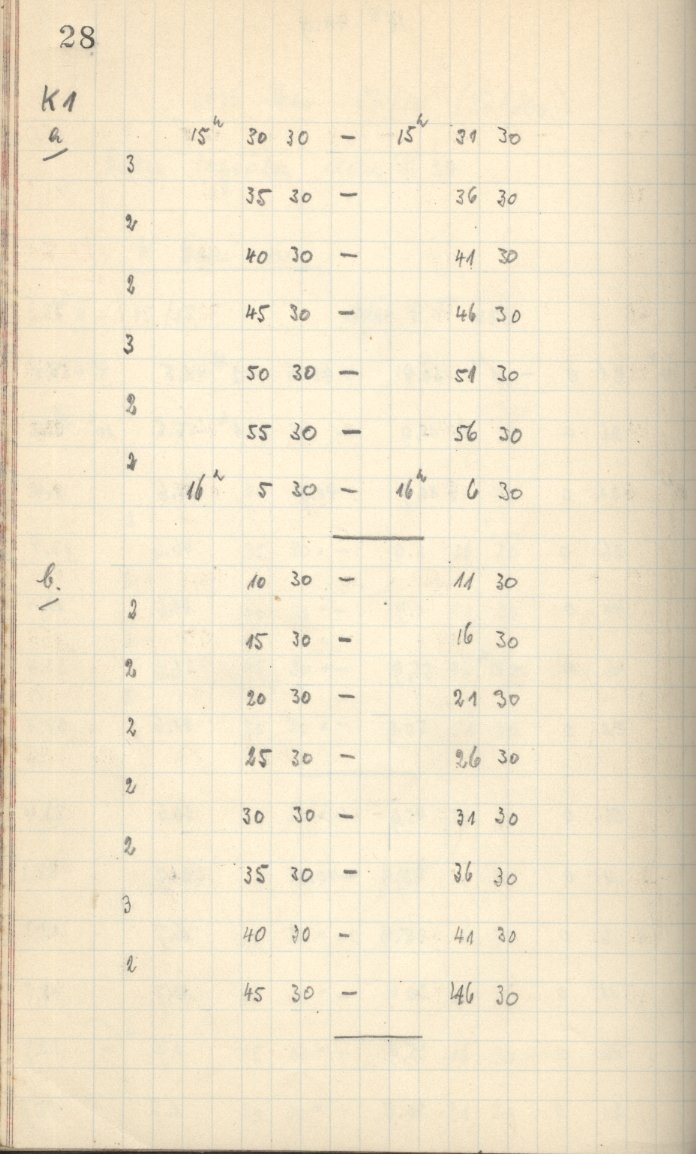 28
K1
a 15h 30 30 — 15h 31 30
3
35 30 — 36 30
2
40 30 — 41 30
2
45 30 — 46 30
3
50 30 — 51 30
2
55 30 — 56 30
2
16h 5 30 — 16h 6 30
b. 10 30 — 11 30
2
15 30 — 16 30
2
20 30 — 21 30
2
25 30 — 26 30
2
30 30 — 31 30
2
35 30 — 36 30
3
40 30 — 41 30
2
45 30 — 46 30